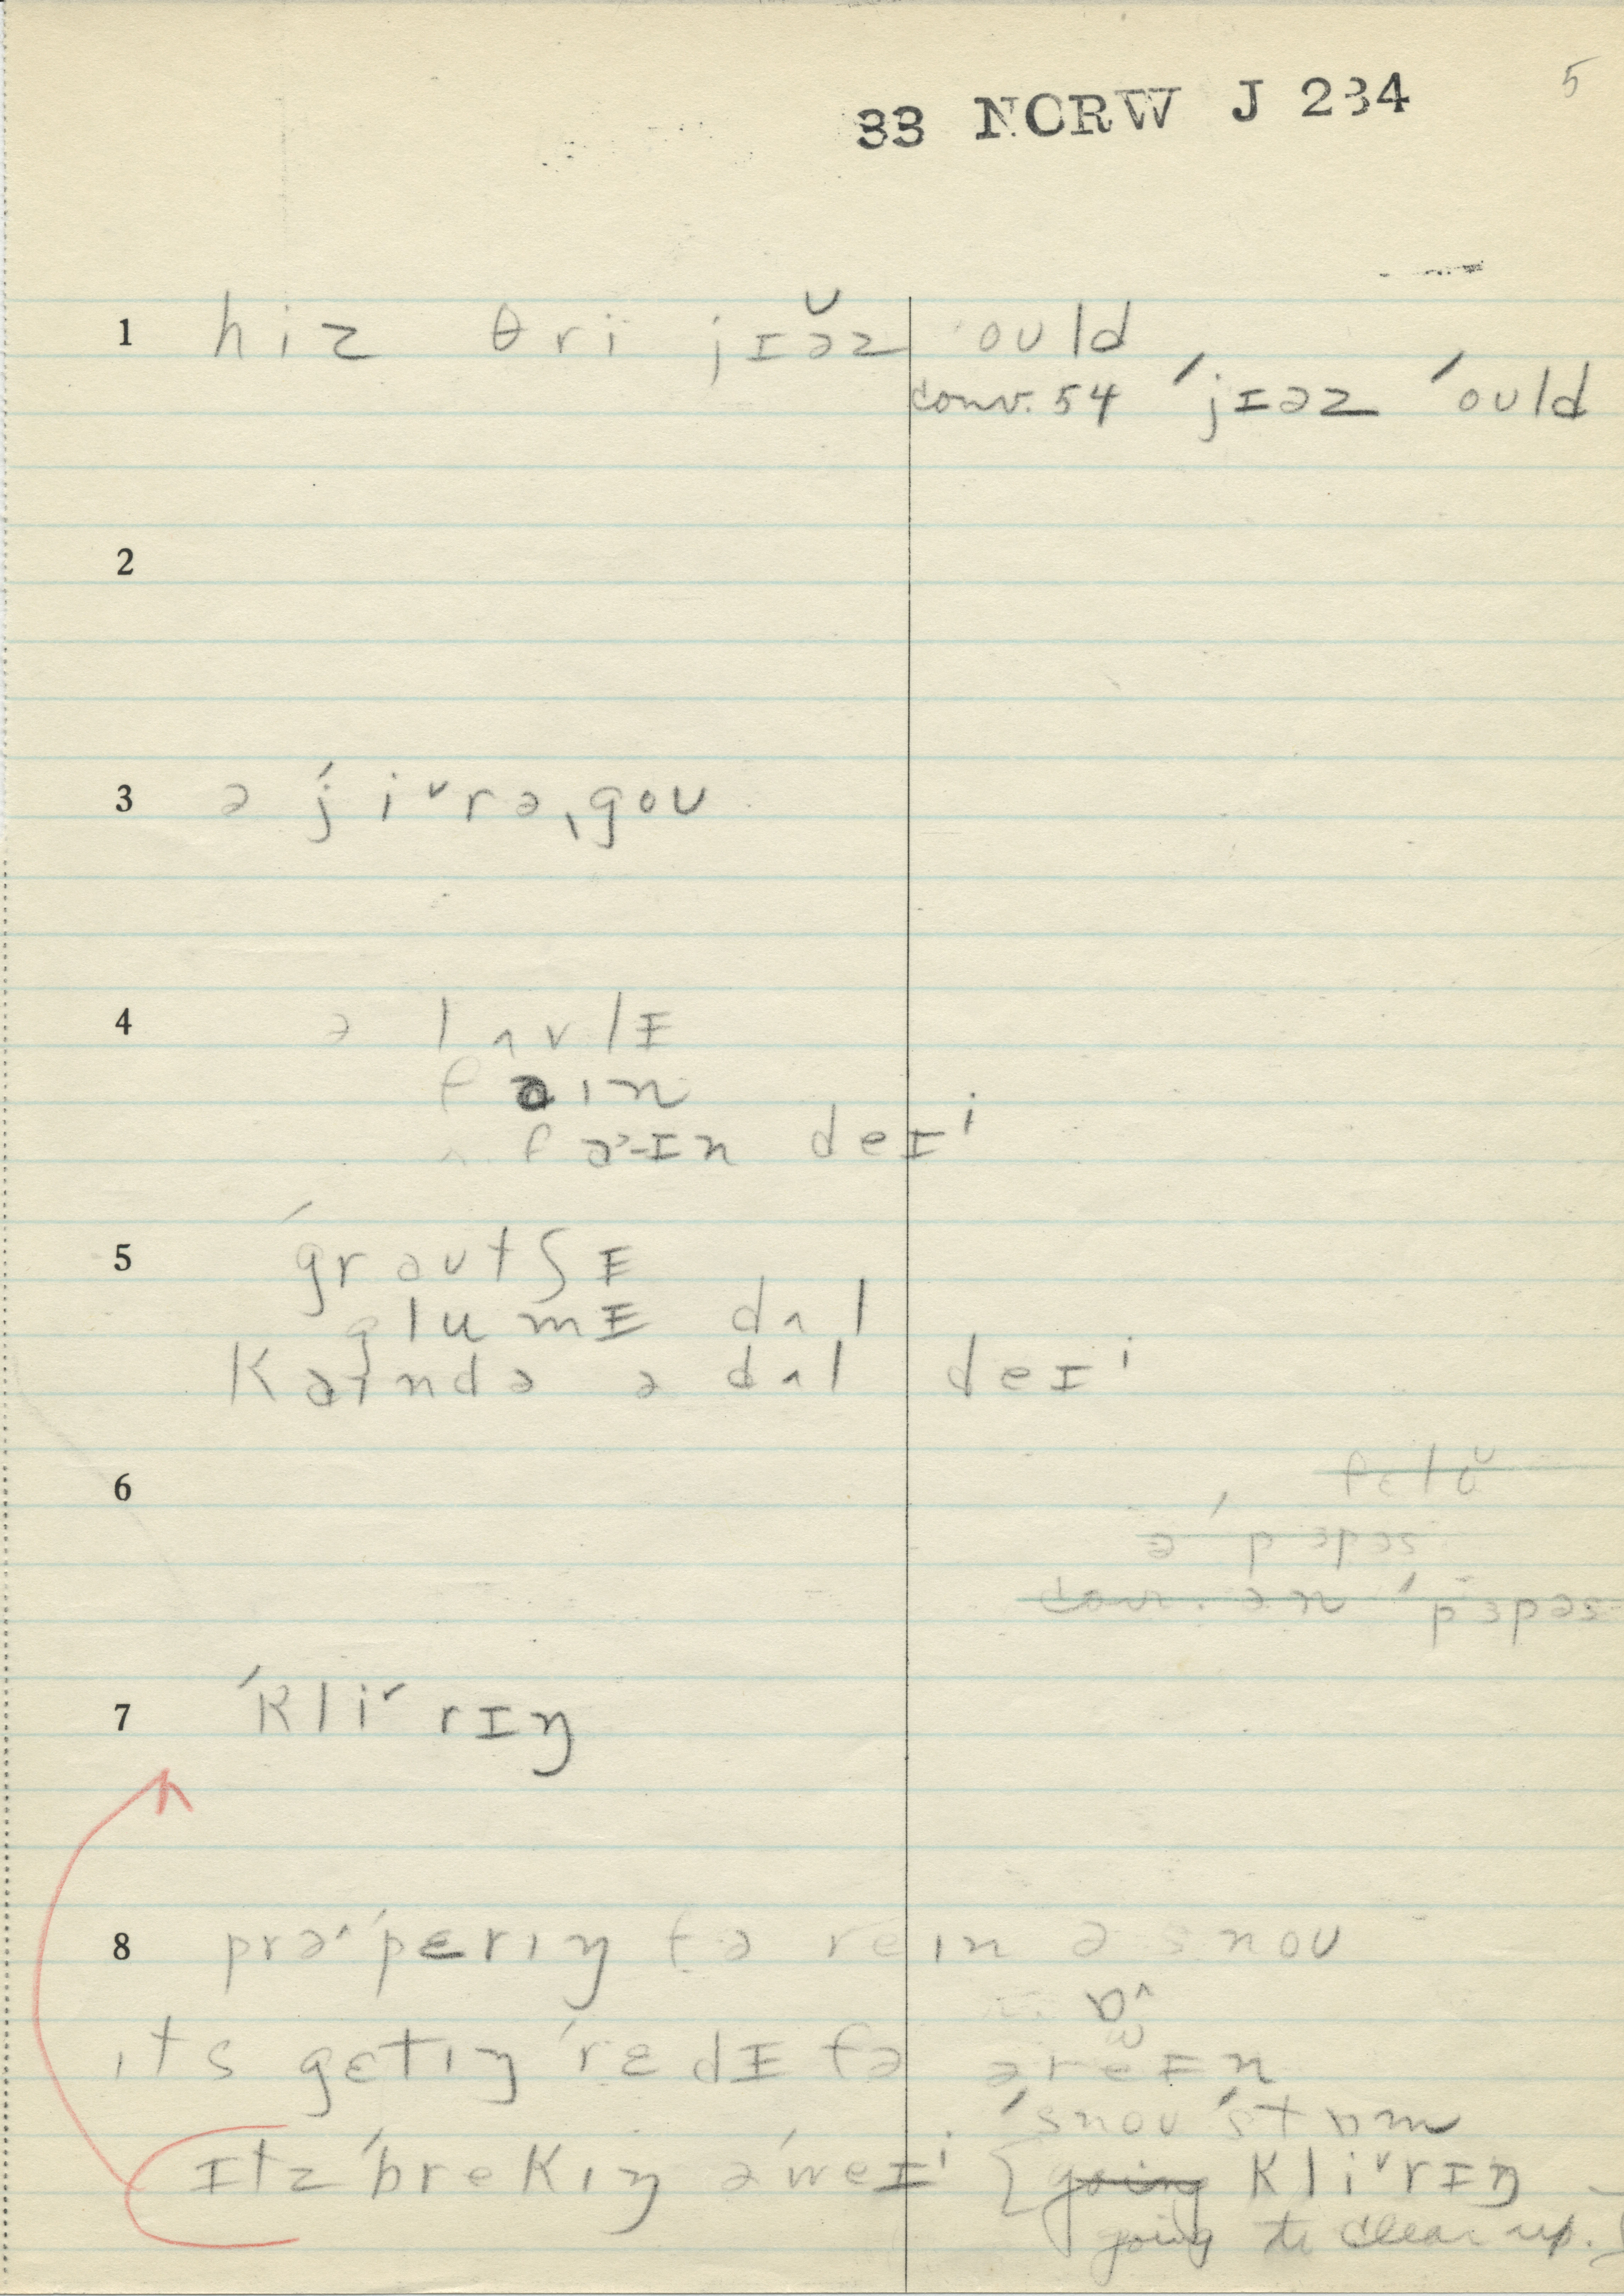 5
33 NCRW J 234
1 hiz θri jɪə̆z ould
conv. 54 ˈjɪəz ˈould
2
3 ə ˈjiˇrəˌgou
4 ə lʌvlɪ
fain
fɑ˃-ɪn deɪⁱ
5 ˈgrautʃɪ
glumɪ dʌl
Kaində ə dʌl deɪⁱ
6
ə ˈpɜpəs
conv. ən ˈpɜpəs
7 ˈKliˇrɪŋ
8 prəˈpɛrıŋ fə rein ə snou
ıts gɛtıŋ ˈrɛdɪ fə əreɪn
ˈsnou ˈstɒm
ɪtz ˈbrekıŋ əˈweɪⁱ [going Kliˇrɪŋ
going to clear up.]